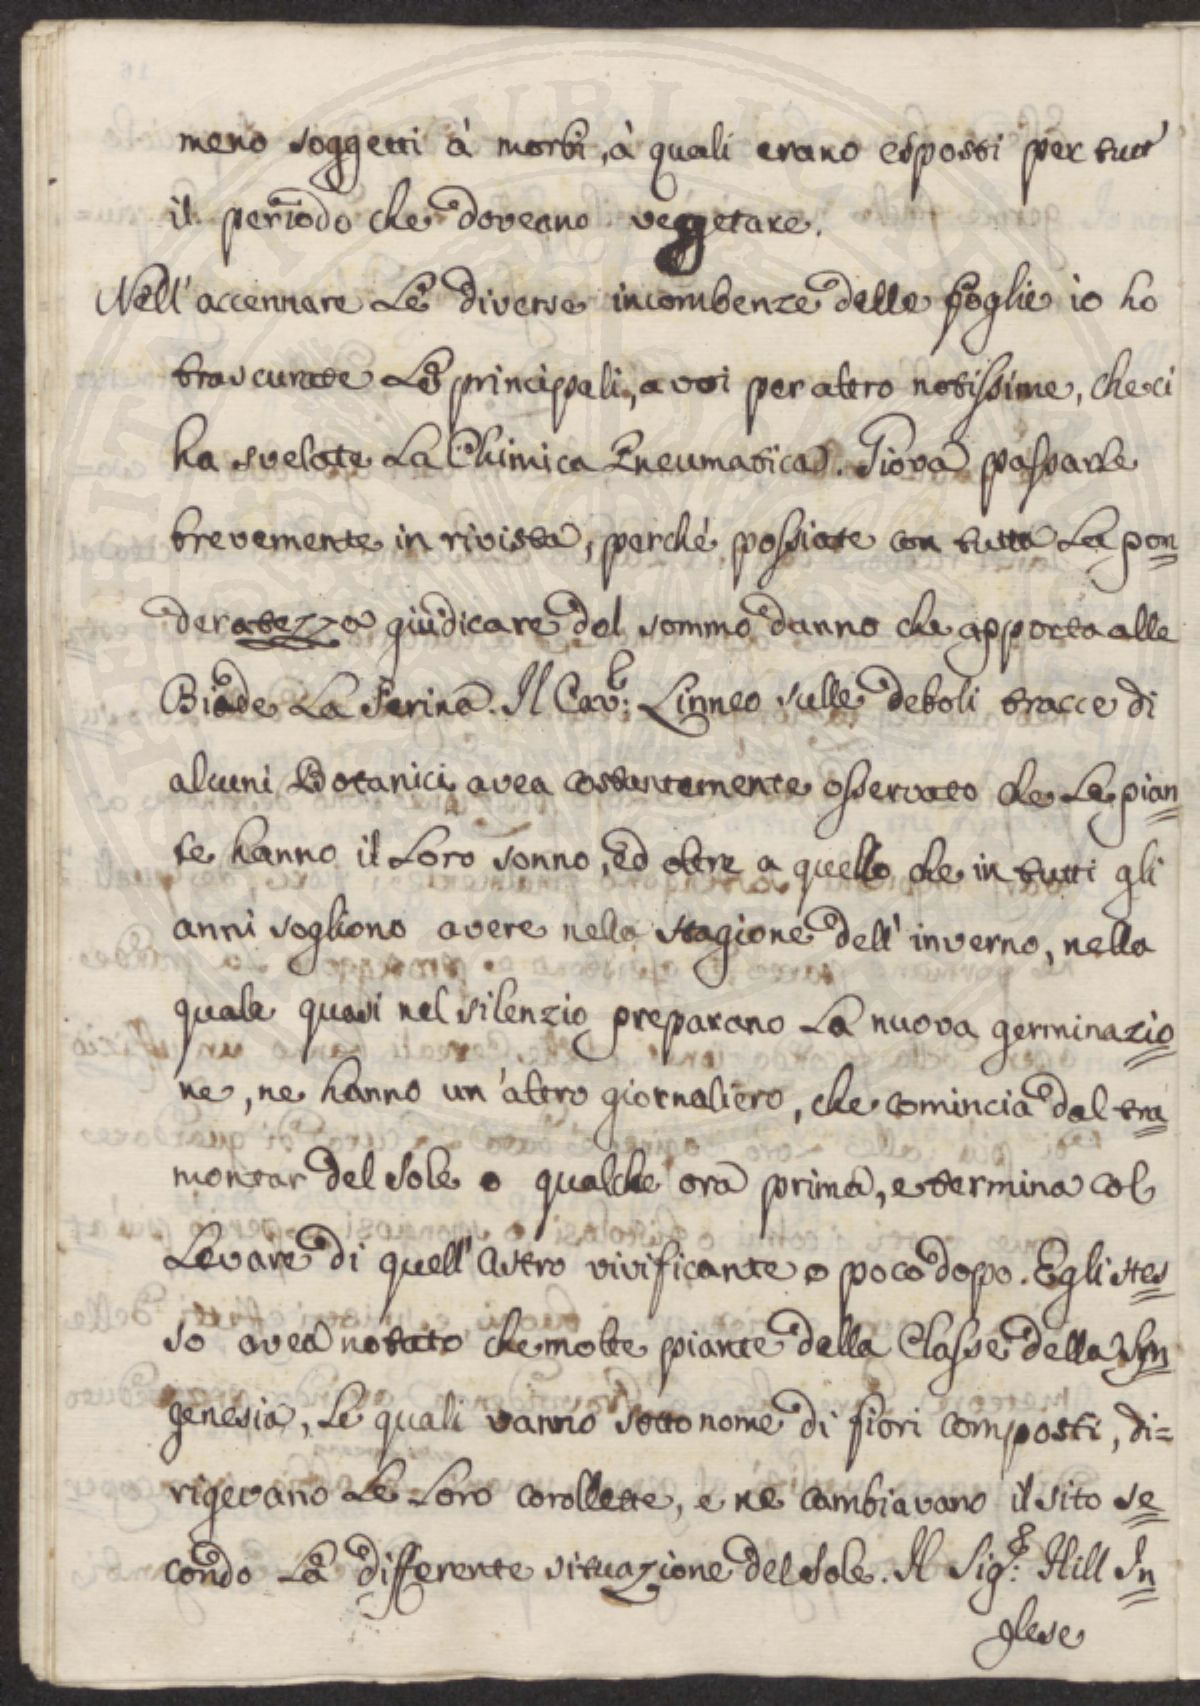 meno soggetti à morbi, à quali erano esposti per tutt'
il periodo che doveano veggetare.
Nell' accennare Le diverse incombenze delle foglie io ho
trascurate Le principali, a voi per altro notissime, che ci
ha svelate La Chimica Pneumatica. Giova passarle
brevemente in rivista, perché possiate con tutta La pon=
deratezza giudicare del sommo danno che apporta alle
Biade La Farina. Il Cav.e: Linneo sulle deboli tracce di
alcuni Botanici avea costantemente osservato che Le pian=
te hanno il Loro sonno, ed oltre a quello che in tutti gli
anni sogliono avere nella stagione dell' inverno, nella
quale quasi nel silenzio preparano La nuova germinazio=
ne, ne hanno un'altro giornaliero, che comincia dal tra=
montar del sole o qualche ora prima, e termina col
Levare di quell' astro vivificante o poco dopo. Egli stes=
so avea notato che molte piante della Classe della Syn=
genesia, Le quali vanno sotto nome di fiori composti, di=
rigevano Le Loro corollette, e ne cambiavano il sito se=
condo La differente situazione del sole. Il Sig.r: Hill In=
glese